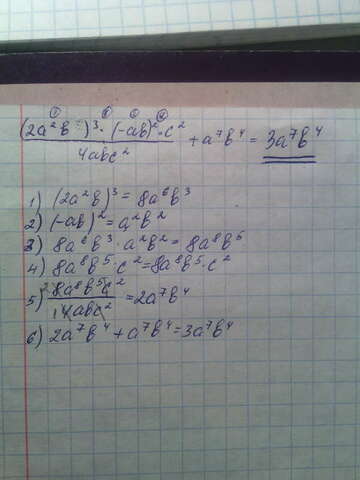 (2a²b)³ · (-ab)² · c² / 4abc² + a⁷b⁴ = 3a⁷b⁴
1) (2a²b)³ = 8a⁶b³
2) (-ab)² = a²b²
3) 8a⁶b³ · a²b² = 8a⁸b⁵
4) 8a⁸b⁵ · c² = 8a⁸b⁵ · c²
5) 8a⁸b⁵c² / 4abc² = 2a⁷b⁴
6) 2a⁷b⁴ + a⁷b⁴ = 3a⁷b⁴